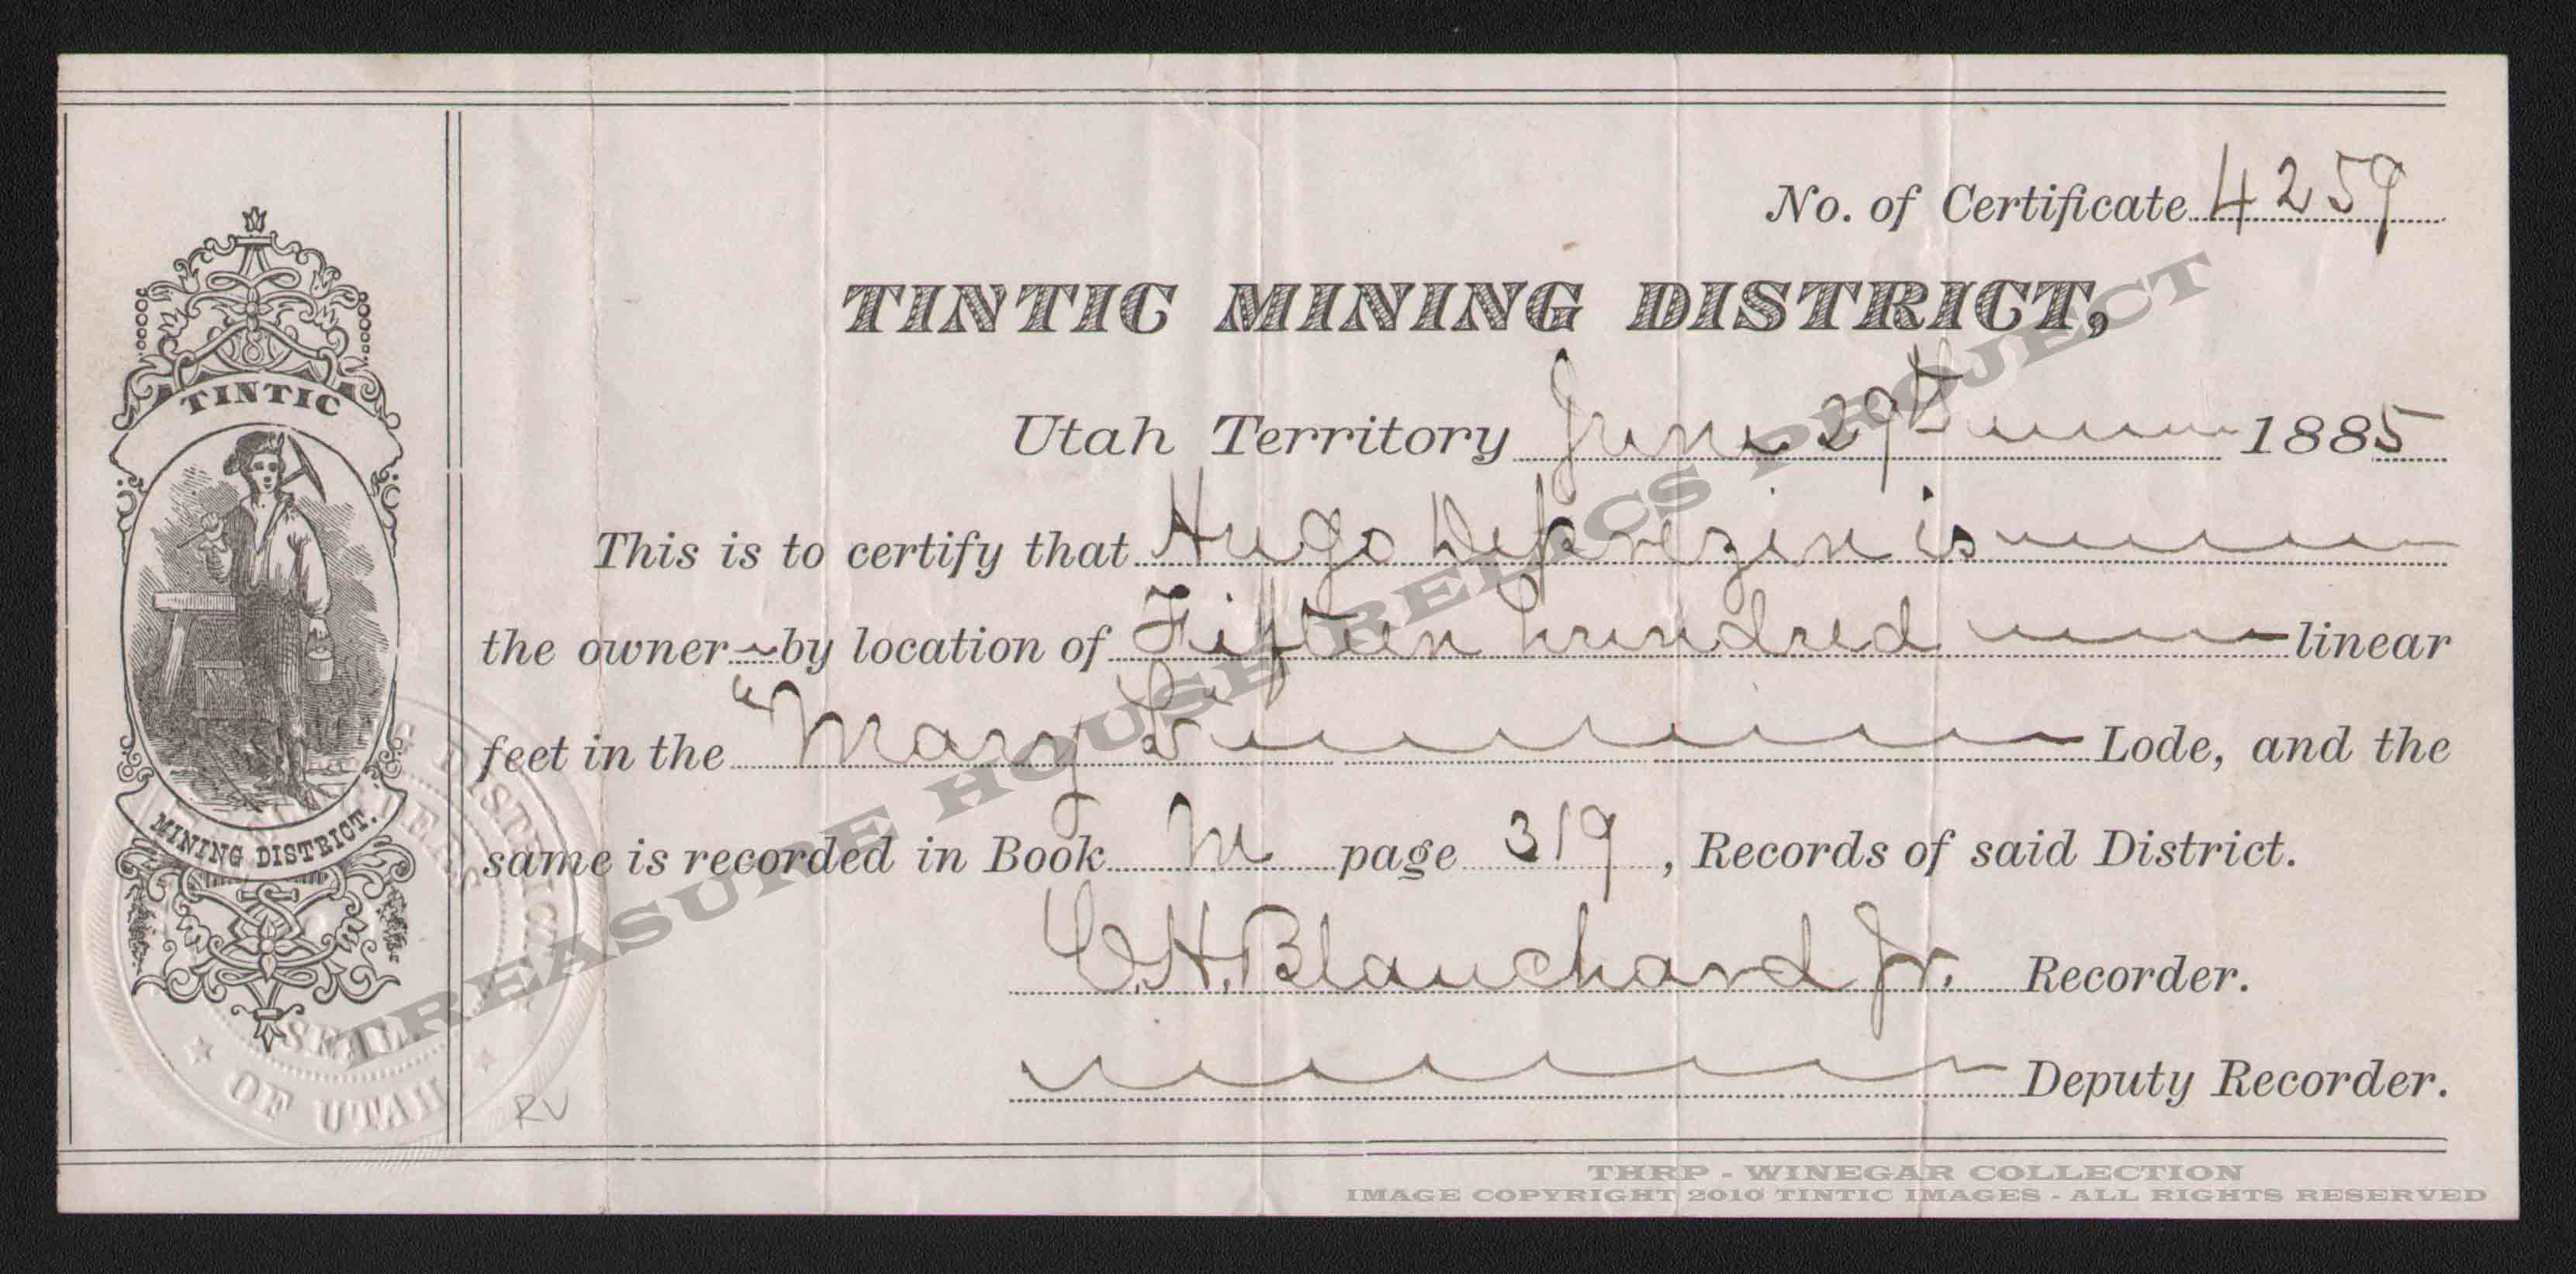 No. of Certificate 4259
TINTIC MINING DISTRICT,
Utah Territory June 29th 1885
This is to certify that Hugo Deprezin is
the owner by location of Fifteen hundred linear
feet in the "Mary L Lode, and the
same is recorded in Book M page 319, Records of said District.
C. H. Blanchard Jr. Recorder.
Deputy Recorder.
TINTIC
MINING DISTRICT.
DISTRICT
SEAL
OF UTAH
RV
TREASURE HOUSE RELICS PROJECT
THRP - WINEGAR COLLECTION
IMAGE COPYRIGHT 2010 TINTIC IMAGES - ALL RIGHTS RESERVED